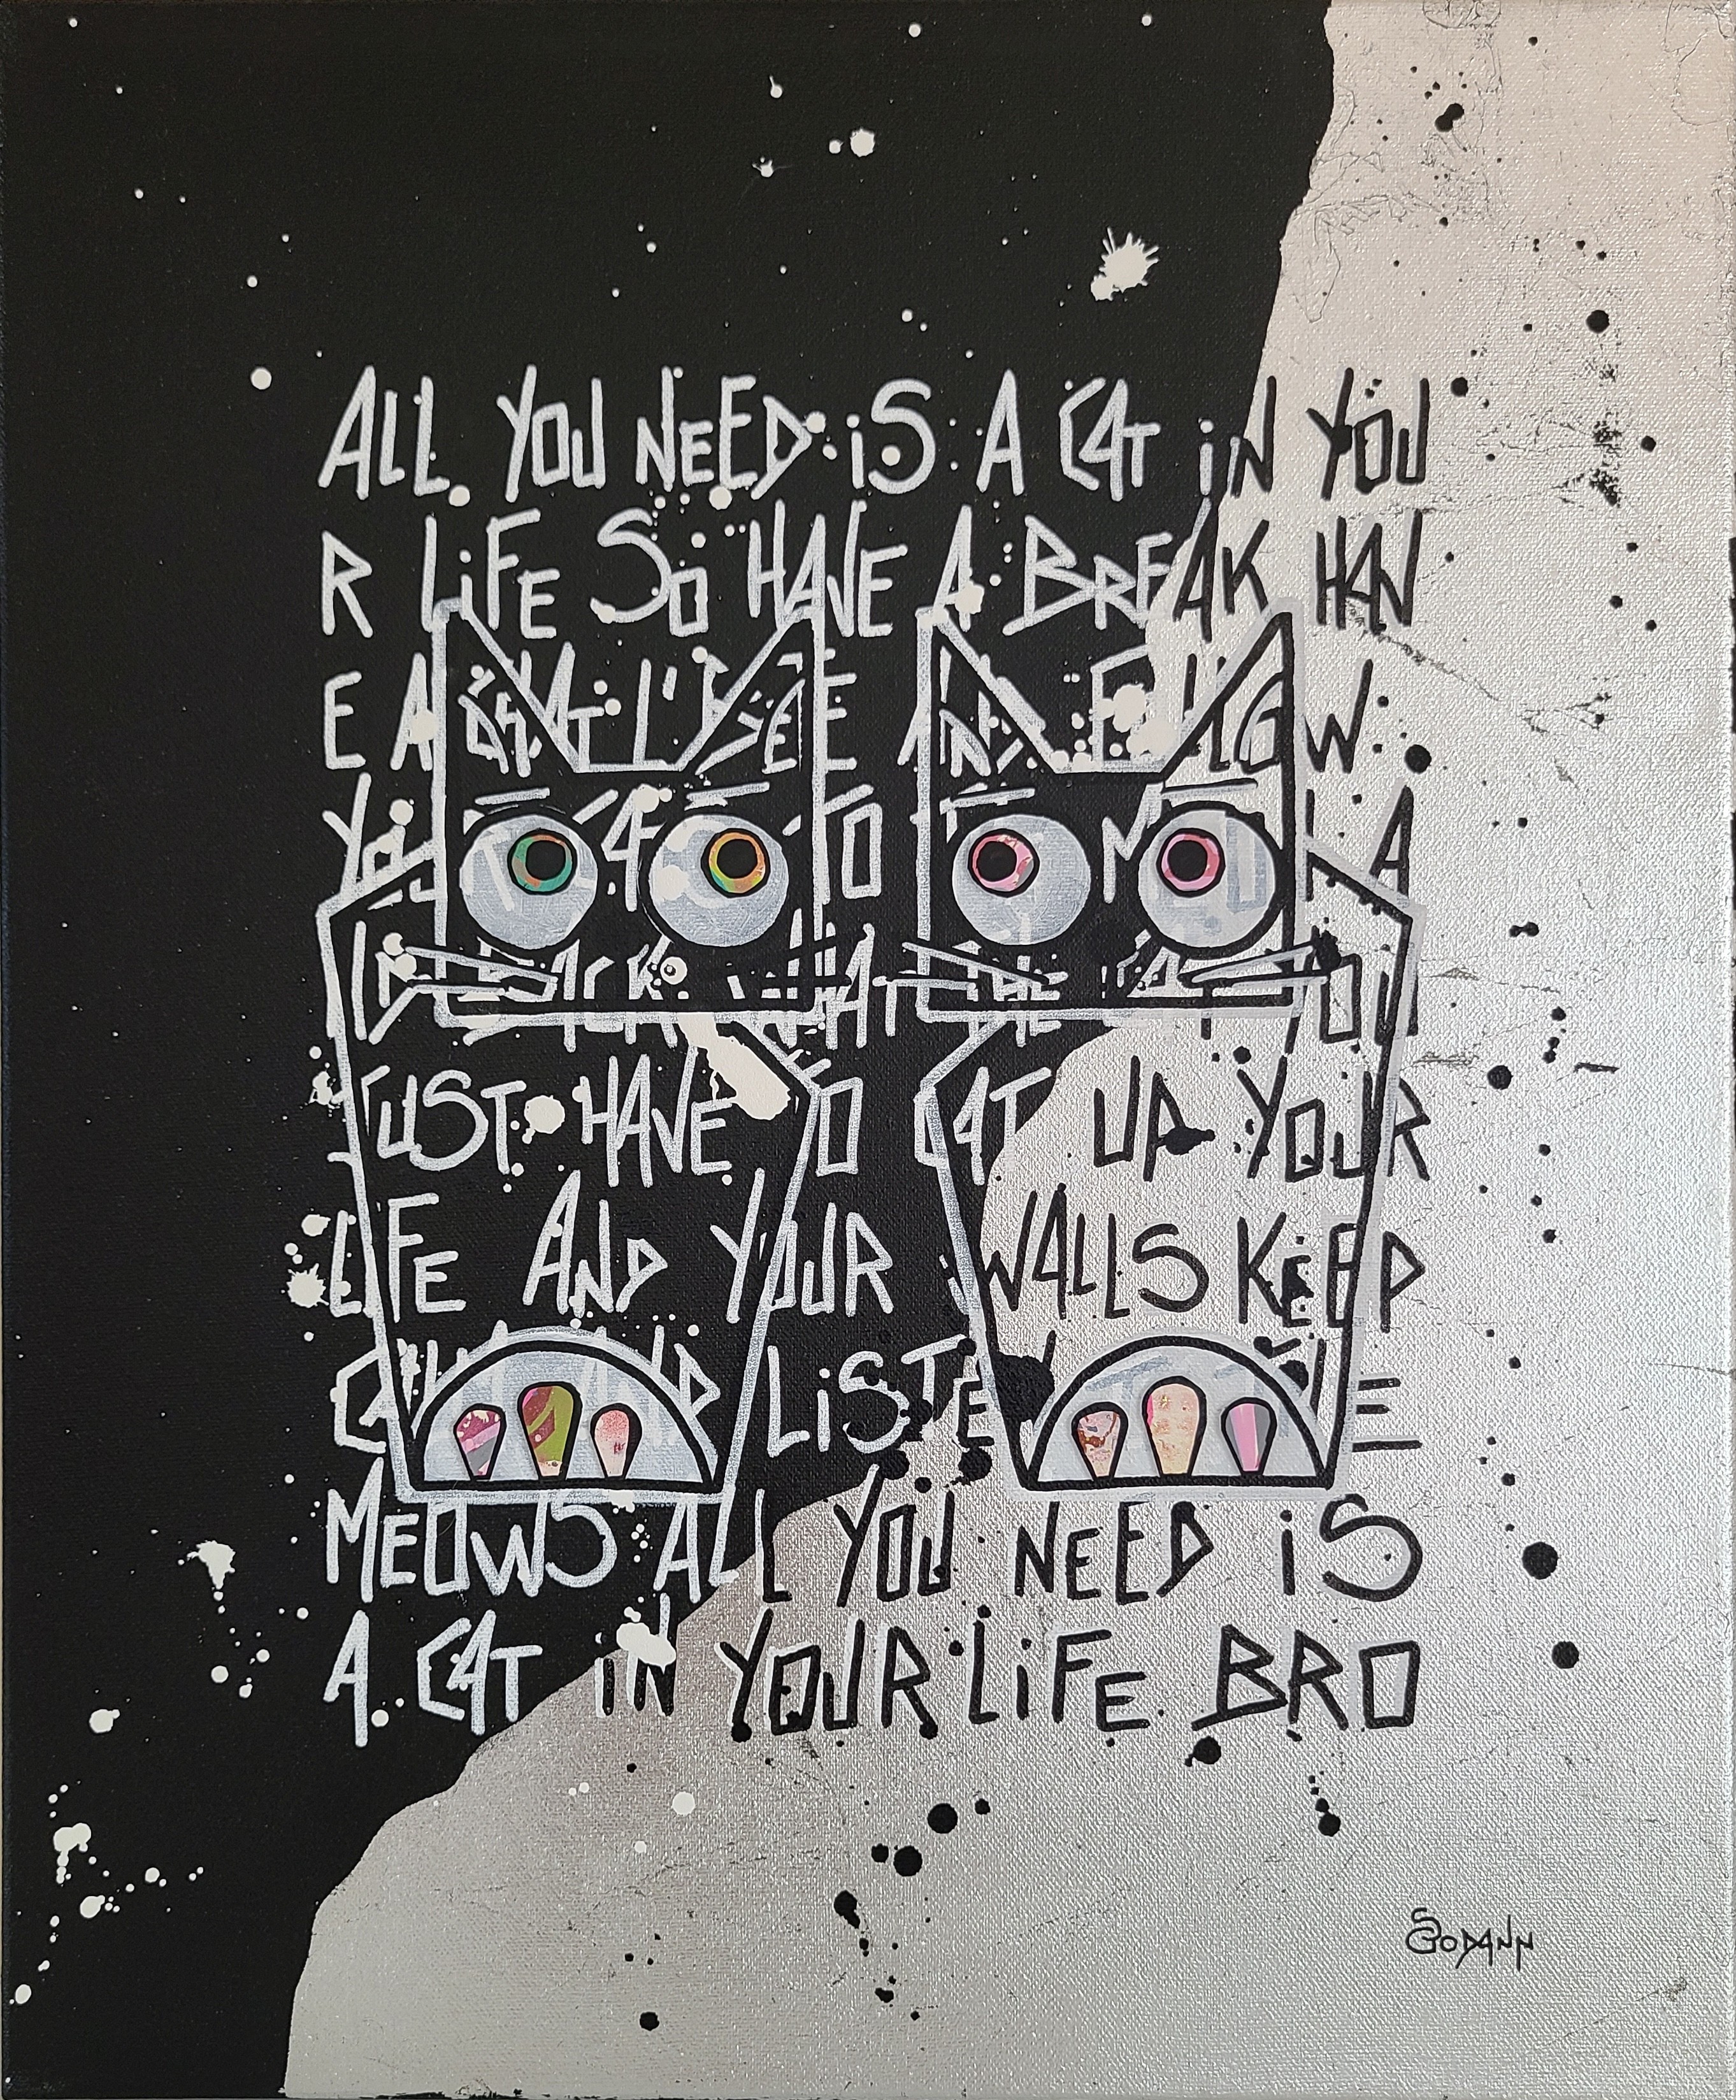 ALL YOU NEED iS A CAT iN YOU
R LiFE SO HAVE A BREAK HAV
E A
YOU TO
BACK. WHAT THE CAT YOU
JUST HAVE TO CAT UP YOUR
LiFE AND YOUR WALLS KEEP
CALM AND LiSTEN THE
MEOWS ALL YOU NEED iS
A CAT iN YOUR LiFE BRO
GODANN